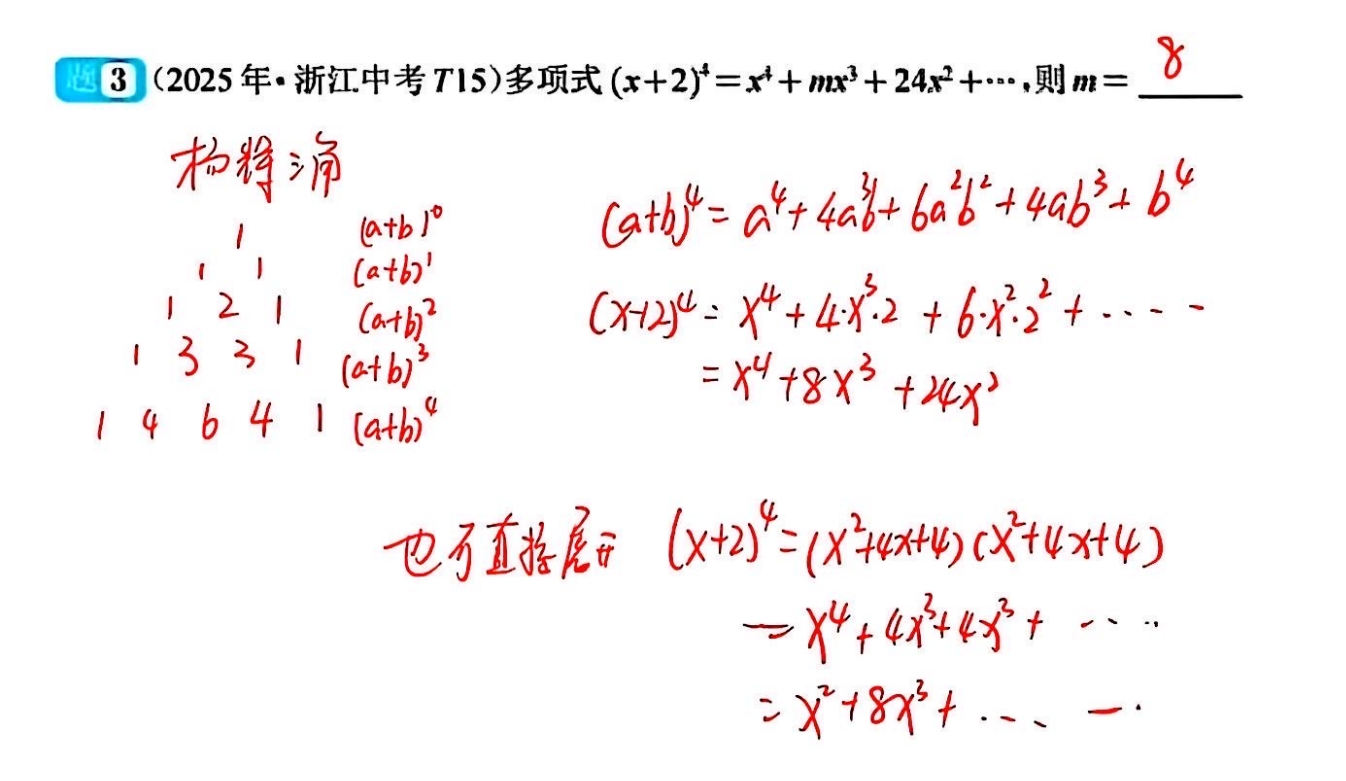 题3 (2025年·浙江中考T15)多项式(x+2)⁴=x⁴+mx³+24x²+⋯,则m= 8
杨辉三角
1 (a+b)⁰
1 1 (a+b)¹
1 2 1 (a+b)²
1 3 3 1 (a+b)³
1 4 6 4 1 (a+b)⁴
(a+b)⁴=a⁴+4a³b+6a²b²+4ab³+b⁴
(x+2)⁴=x⁴+4·x³·2+6·x²·2²+⋯⋯
=x⁴+8x³+24x²
也可直接展开 (x+2)⁴=(x²+4x+4)(x²+4x+4)
=x⁴+4x³+4x³+⋯⋯
=x²+8x³+⋯⋯